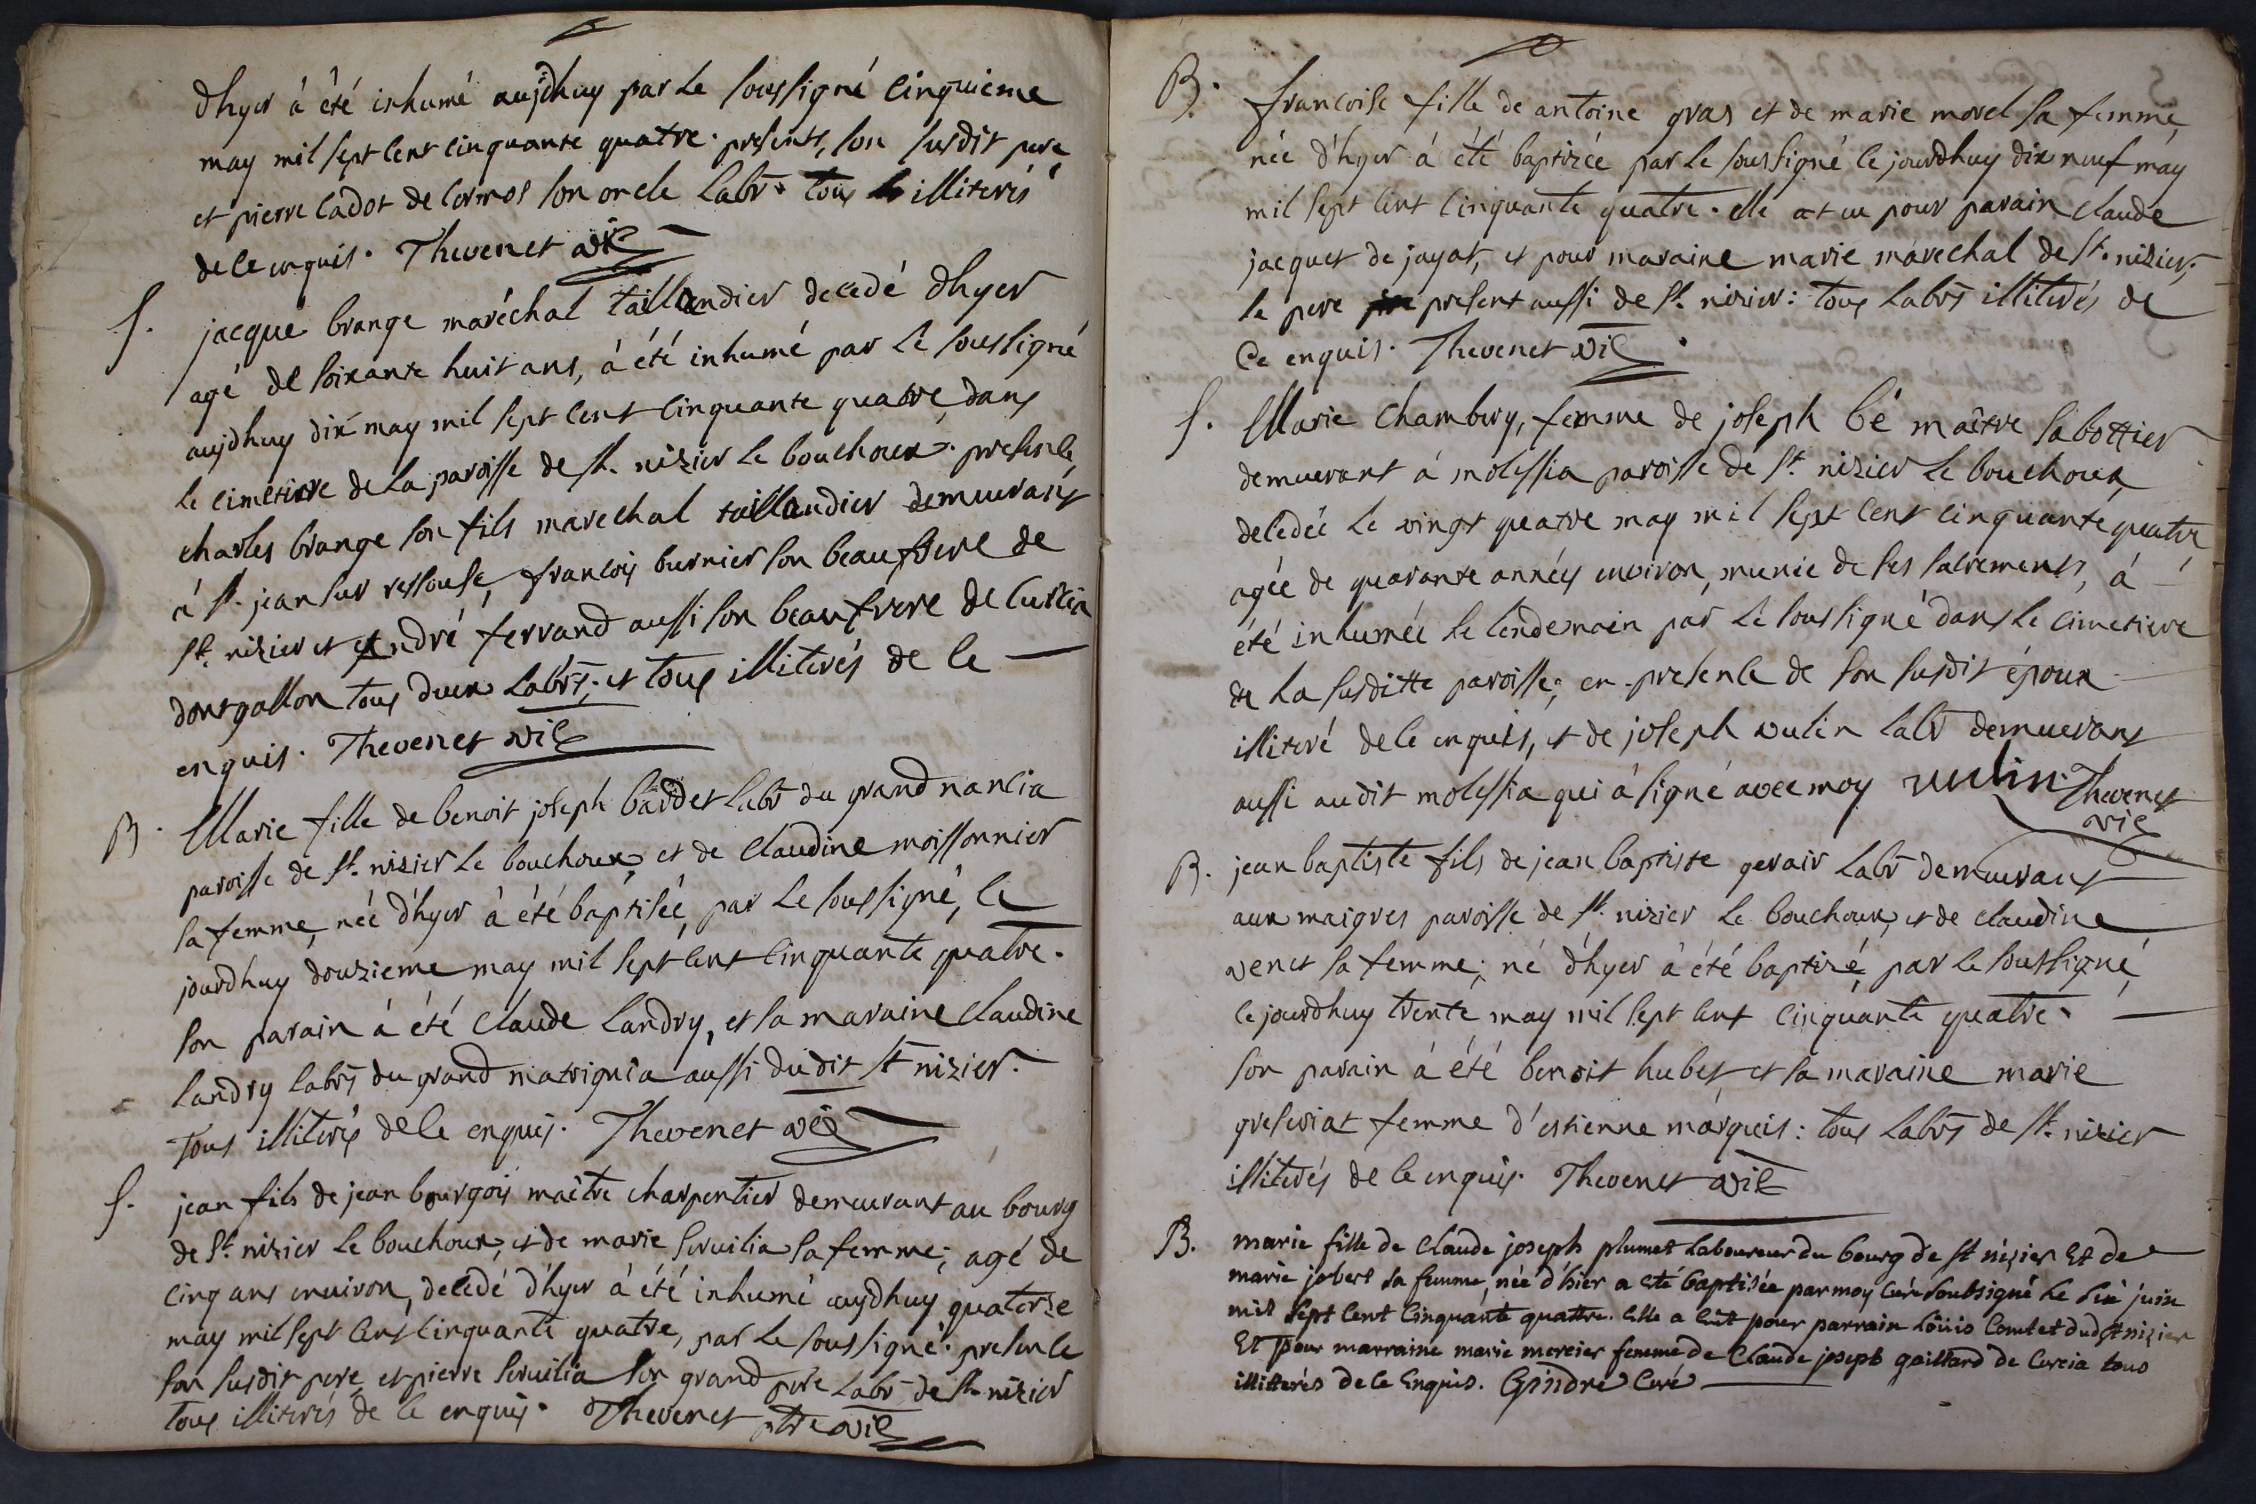 dhyer à été inhumé aujdhuy par Le soussigné cinquieme
may mil sept cent cinquante quatre. presents, son susdit pere
et pierre cadot de cormos son oncle Labr. tous illiterés
de ce enquis. Thevenet vic
S. jacque brange maréchal taillandier decedé dhyer
agé de soixante huit ans, à été inhumé par Le soussigné
aujdhuy dix may mil sept cent cinquante quatre, dans
le cimetiere de La paroisse de St. nizier le bouchoux. presence,
charles brange son fils marechal taillandier demeurant
à St. jean sur ressouse, francois burnier son beaufrere de
St. nizier et andré ferrand aussi son beaufrere de Curcia
dontgallon tous deux Labrs; et tous illiterés de ce
enquis. Thevenet vic
B. Marie fille de benoit joseph bardet Labr du grand nancia
paroisse de St. nizier le bouchoux, et de claudine moissonnier
sa femme, née d'hyer à été baptisée, par Le soussigné, ce
jourdhuy douzieme may mil sept cent cinquante quatre.
son parain à été claude Landry, et sa maraine claudine
Landry labrs du grand matignia aussi dudit St nizier.
Tous illiterés de ce enquis. Thevenet vic
S. jean fils de jean bourgois maître charpentier demeurant au bourg
de St. nizier le bouchoux, et de marie servilia sa femme; agé de
cinq ans environ, decedé d'hyer à été inhumé aujdhuy quatorze
may mil sept cent cinquante quatre, par Le soussigné. presence
son susdit pere, et pierre servilia son grand pere Labr de St. nizier
tous illiterés de ce enquis. Thevenet ptre vic
B. francoise fille de antoine gras et de marie morel sa femme,
née d'hyer à été baptizée par Le soussigné ce jourdhuy dix neuf may
mil sept cent cinquante quatre. elle at eu pour parain claude
jacquet de jayat, et pour maraine marie maréchal de St. nizier,
le pere present aussi de St. nizier: tous Labrs illiterés de
Ce enquis. Thevenet vic
S. Marie Chambery, femme de joseph bé maître sabottier
demeurant à molissia paroisse de St. nizier Le bouchoux,
decedée Le vingt quatre may mil sept cent cinquante quatre,
agée de quarante années environ, munie de ses sacrements, à
été inhumée Le lendemain par Le soussigné dans Le cimetiere
de La susditte paroisse; en presence de son susdit époux
illiteré de ce enquis, et de joseph vulin labr demeurans
aussi audit molissia qui à signé avec moy vulin. Thevenet
vic
B. jean baptiste fils de jean baptiste gerair Labr demeurant
aux maigres paroisse de St. nizier Le bouchoux, et de claudine
venet sa femme; né d'hyer à été baptizé, par Le soussigné,
ce jourdhuy trente may mil sept cent cinquante quatre.
son parain à été benoit hubet et sa maraine marie
greseriat femme d'estienne marquis: tous Labrs de St. nizier
illiterés de ce enquis. Thevenet vic
B. marie fille de claude joseph plumet Laboureur du bourg de st nizier Et de
marie jobert sa femme, née d'hier a eté baptisée par moy curé soubsigné Le six juin
mil sept cent cinquante quattre. elle a eüt pour parrain Loüis Comtet dud st nizier
Et pour marraine marie mercier femme de Claude joseph gaillard de curcia tous
illitterés de ce Enquis. Gindre Curé